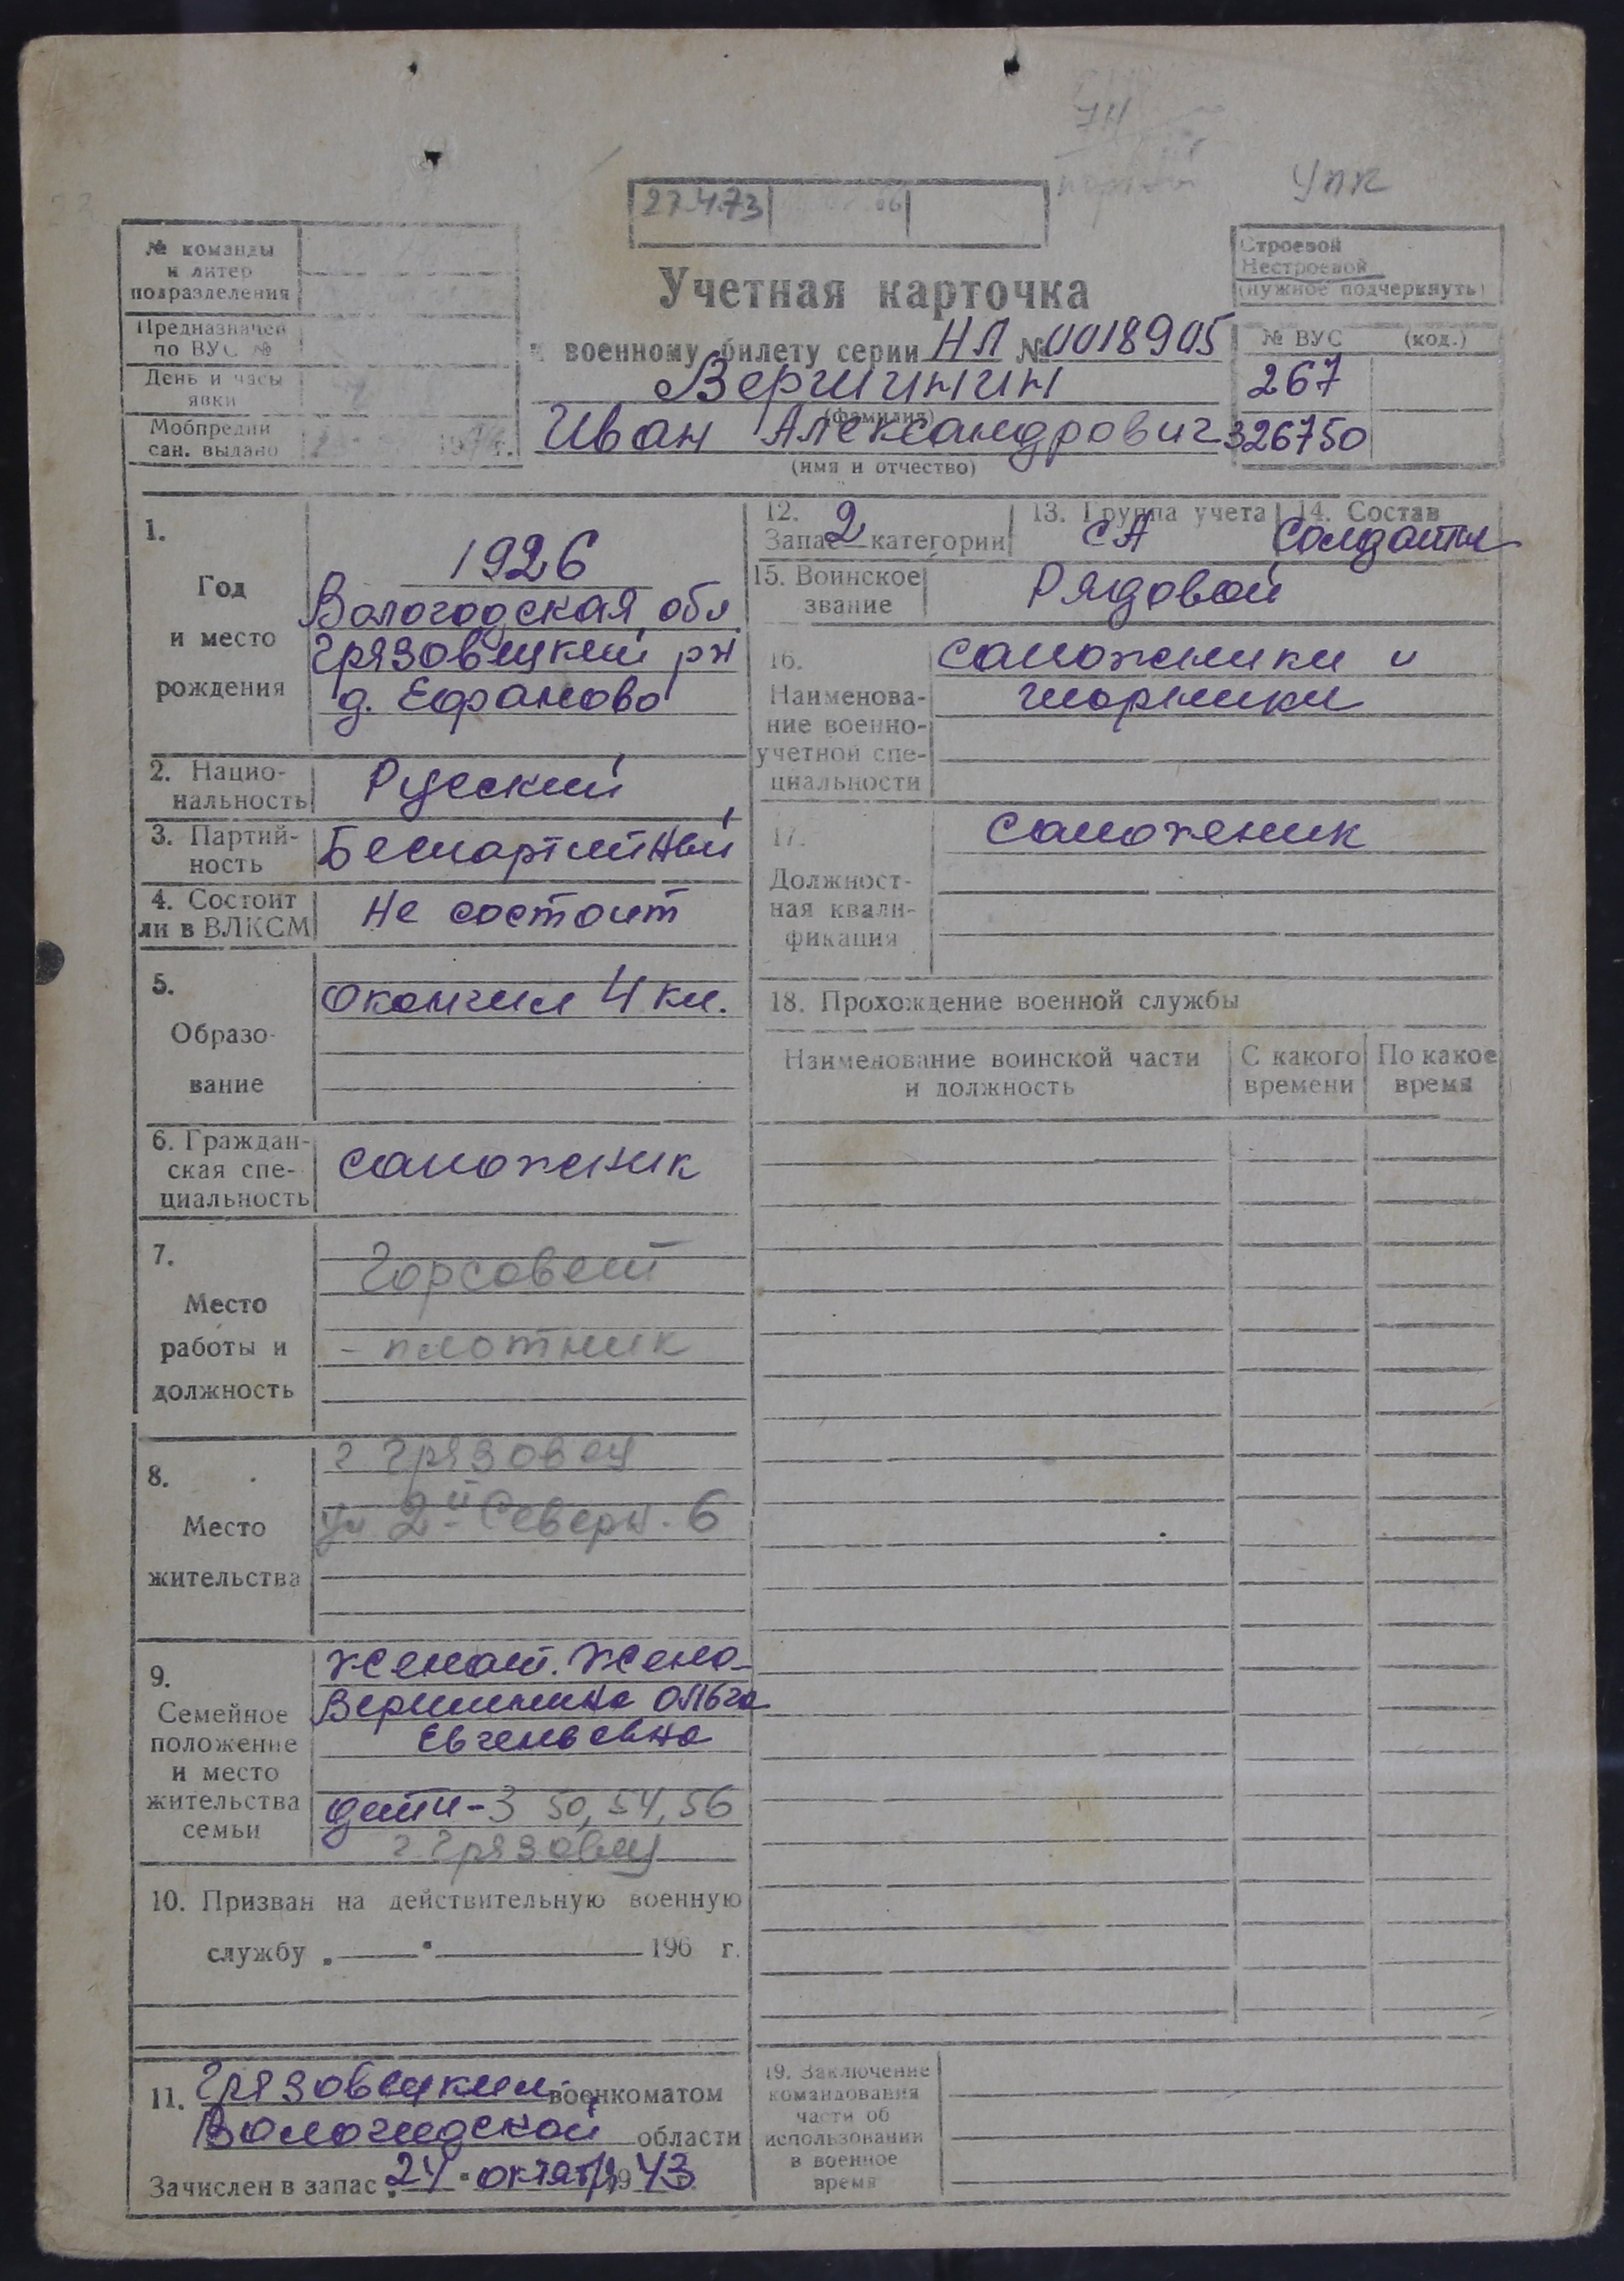 УПК
27.4.73
№ команды
и литер
подразделения
Предназначен
по ВУС №
День и часы
явки
Мобпредпи
сан. выдано
Строевой
Нестроевой
(нужное подчеркнуть)
Учетная карточка
военному билету серии НЛ № 0018905
Вершинин
(фамилия)
Иван Александрович
(имя и отчество)
№ ВУС (код.)
267
326750
1.
Год
и место
рождения
1926
Вологодская обл
Грязовецкий рн
д. Ефаново
2. Нацио-
нальность
Русский
3. Партий-
ность
Беспартийный
4. Состоит
ли в ВЛКСМ
Не состоит
5.
Образо-
вание
Окончил 4 кл.
6. Граждан-
ская спе-
циальность
сапожник
7.
Место
работы и
должность
Горсовет
- плотник
8.
Место
жительства
г Грязовец
ул 2й Северн. 6
9.
Семейное
положение
и место
жительства
семьи
Женат. Жена-
Вершинина Ольга
Евгеньевна
дети-3 50, 54, 56
г Грязовец
10. Призван на действительную военную
службу „ " 196 г.
11. Грязовецким военкоматом
Вологодской области
Зачислен в запас „24" октяб 1943
12. Запас 2 категории
13. Группа учета
СА
14. Состав
Солдаты
15. Воинское
звание
Рядовой
16.
Наименова-
ние военно-
учетной спе-
циальности
сапожники и
шорники
17.
Должност-
ная квали-
фикация
Сапожник
18. Прохождение военной службы
Наименование воинской части
и должность
С какого
времени
По какое
время
19. Заключение
командования
части об
использовании
в военное
время